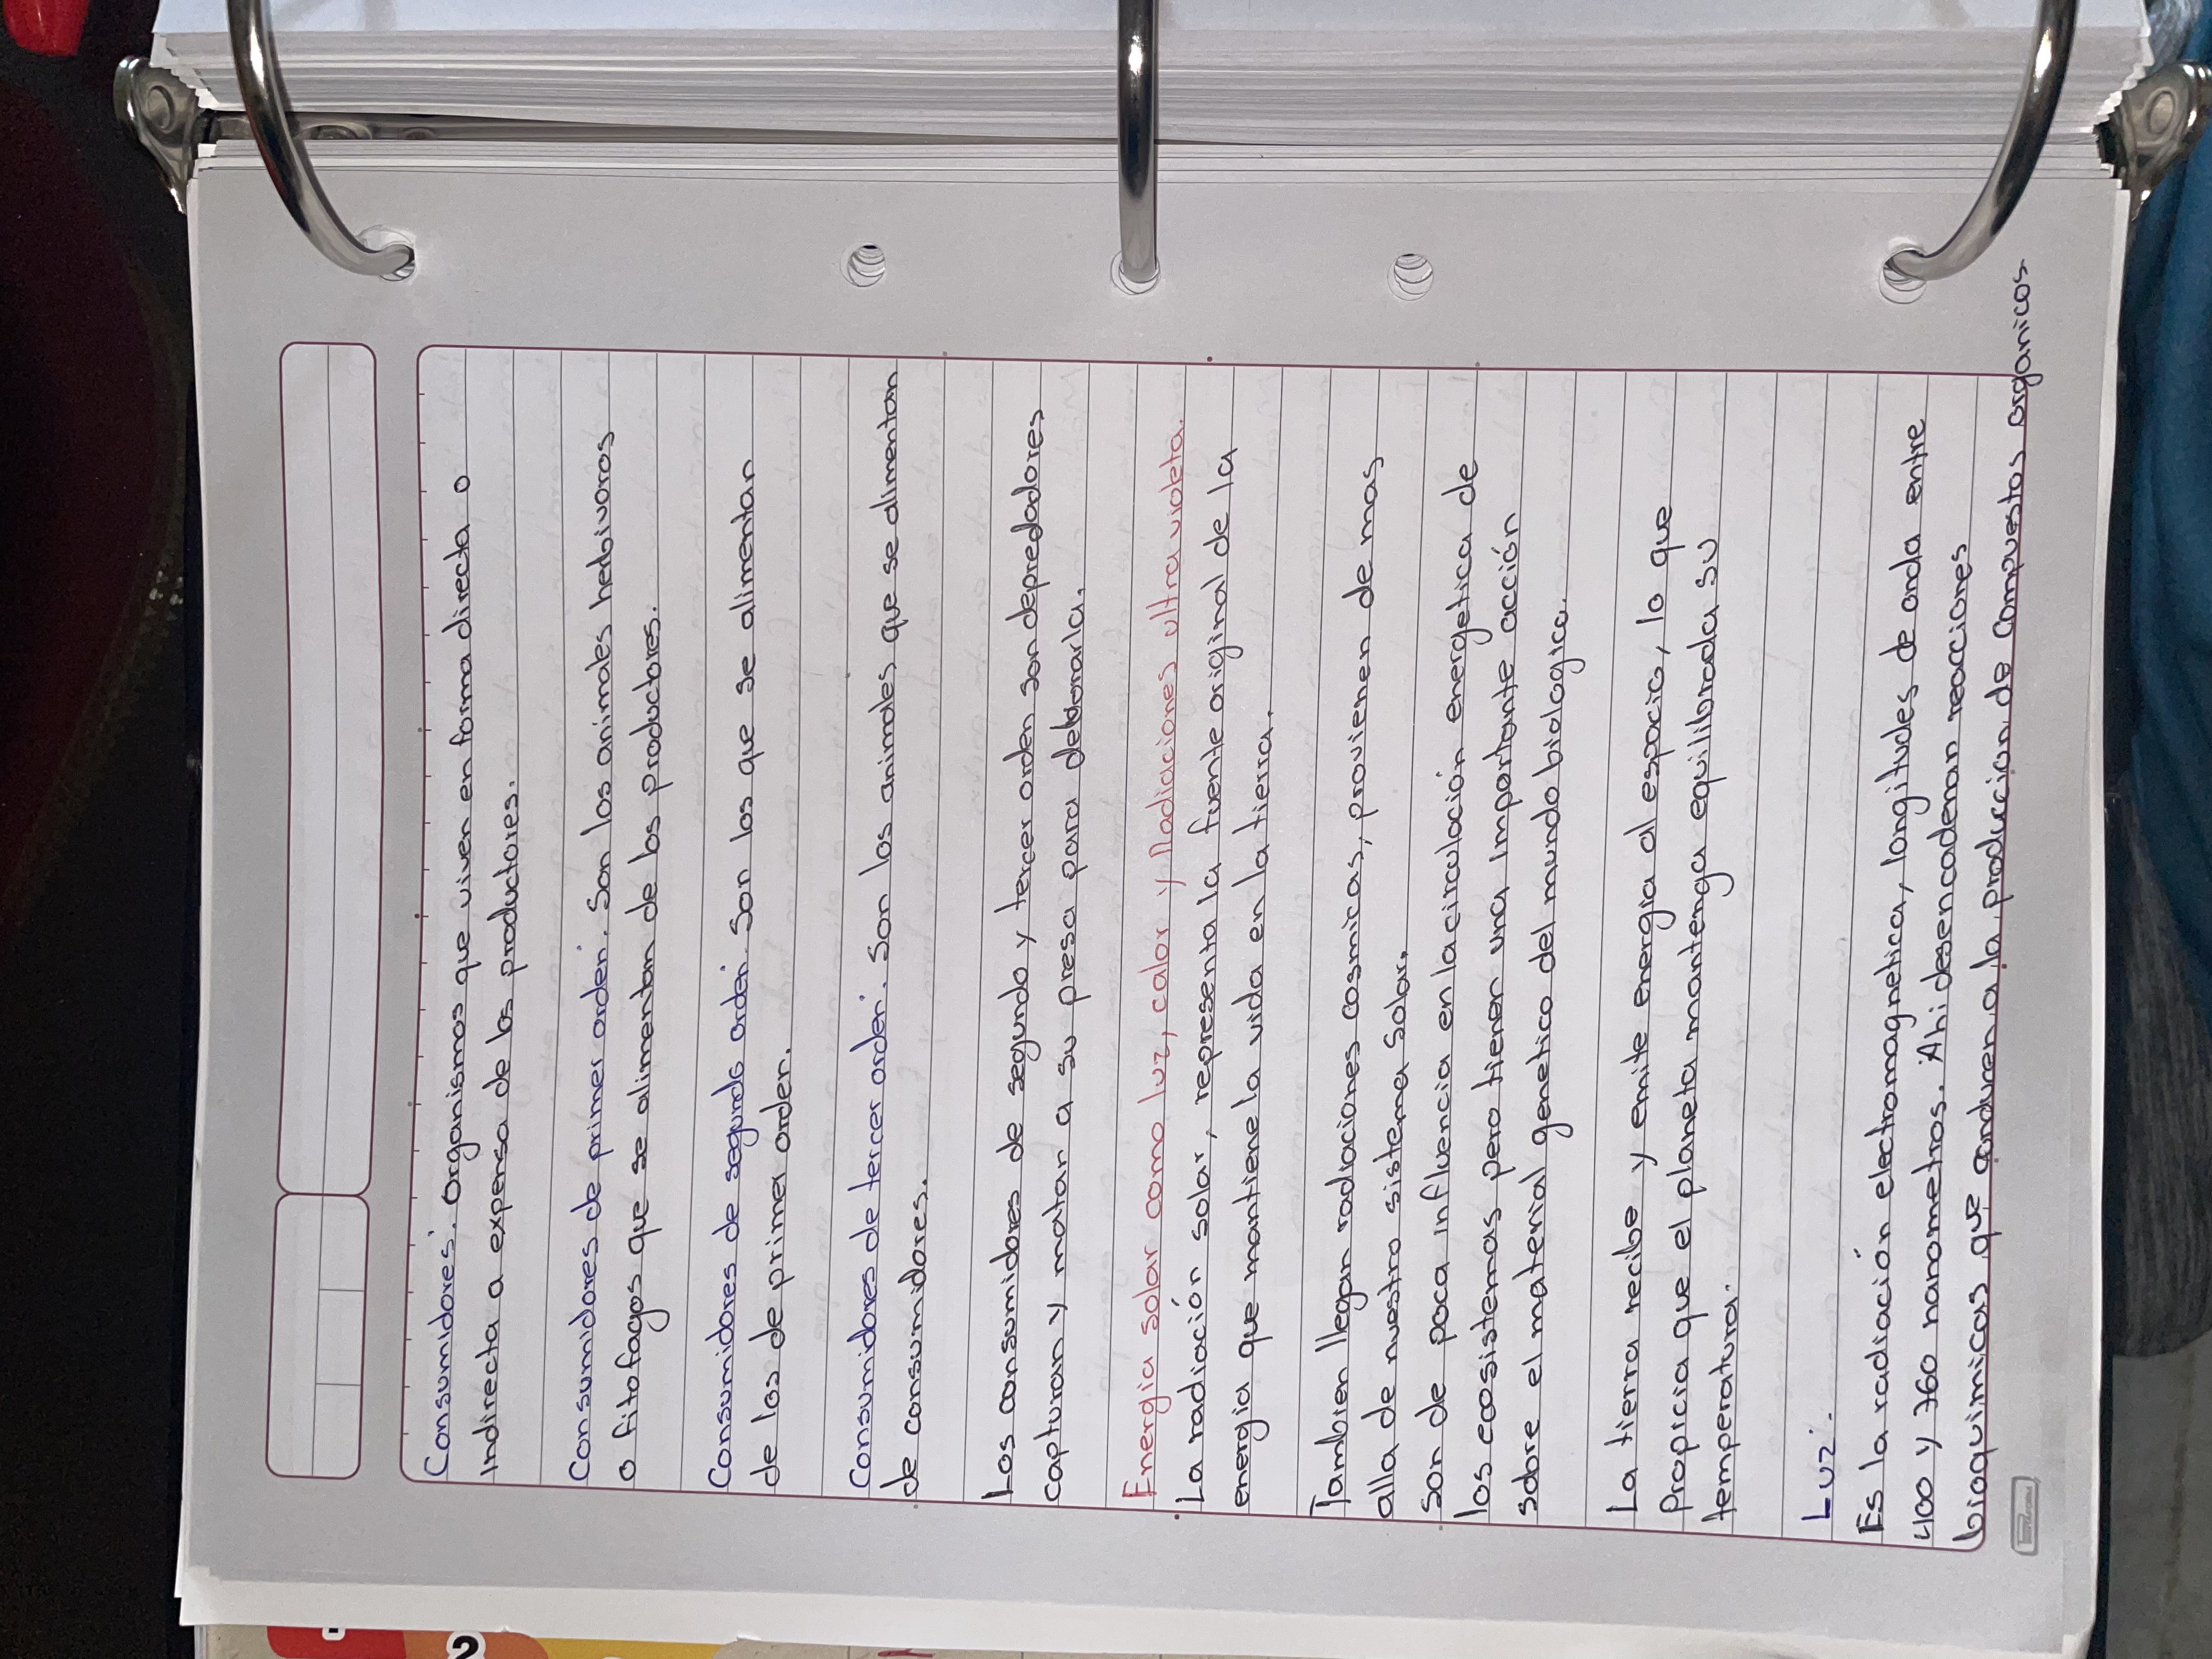 Consumidores: Organismos que viven en forma directa o
Indirecta a expensa de los productores.
Consumidores de primer orden: Son los animales herbivoros
o fitofagos que se alimentan de los productores.
Consumidores de segundo orden: Son los que se alimentan
de los de primer orden.
Consumidores de tercer orden: Son los animales que se alimentan
de consumidores.
Los consumidores de segundo y tercer orden son depredadores
capturan y matan a su presa para
Energia solar como luz, calor y Radiaciones ultra violeta.
La radiación solar, representa la fuente original de la
energia que mantiene la vida en la tierra.
Tambien llegan radiaciones cosmicas, provienen de mas
alla de nuestro sistema solar.
Son de poca influencia en la circulación energetica de
los ecosistemas pero tienen una importante acción
sobre el material genetico del mundo biologico.
La tierra recibe y emite energia al espacio, lo que
Propicia que el planeta mantenga equilibrada su
temperatura.
Luz:
Es la radiación electromagnetica, longitudes de onda entre
400 y 760 nanometros. Ahi desencadenan reacciones
bioquimicas que conducen a la produccion de compuestos organicos.
2